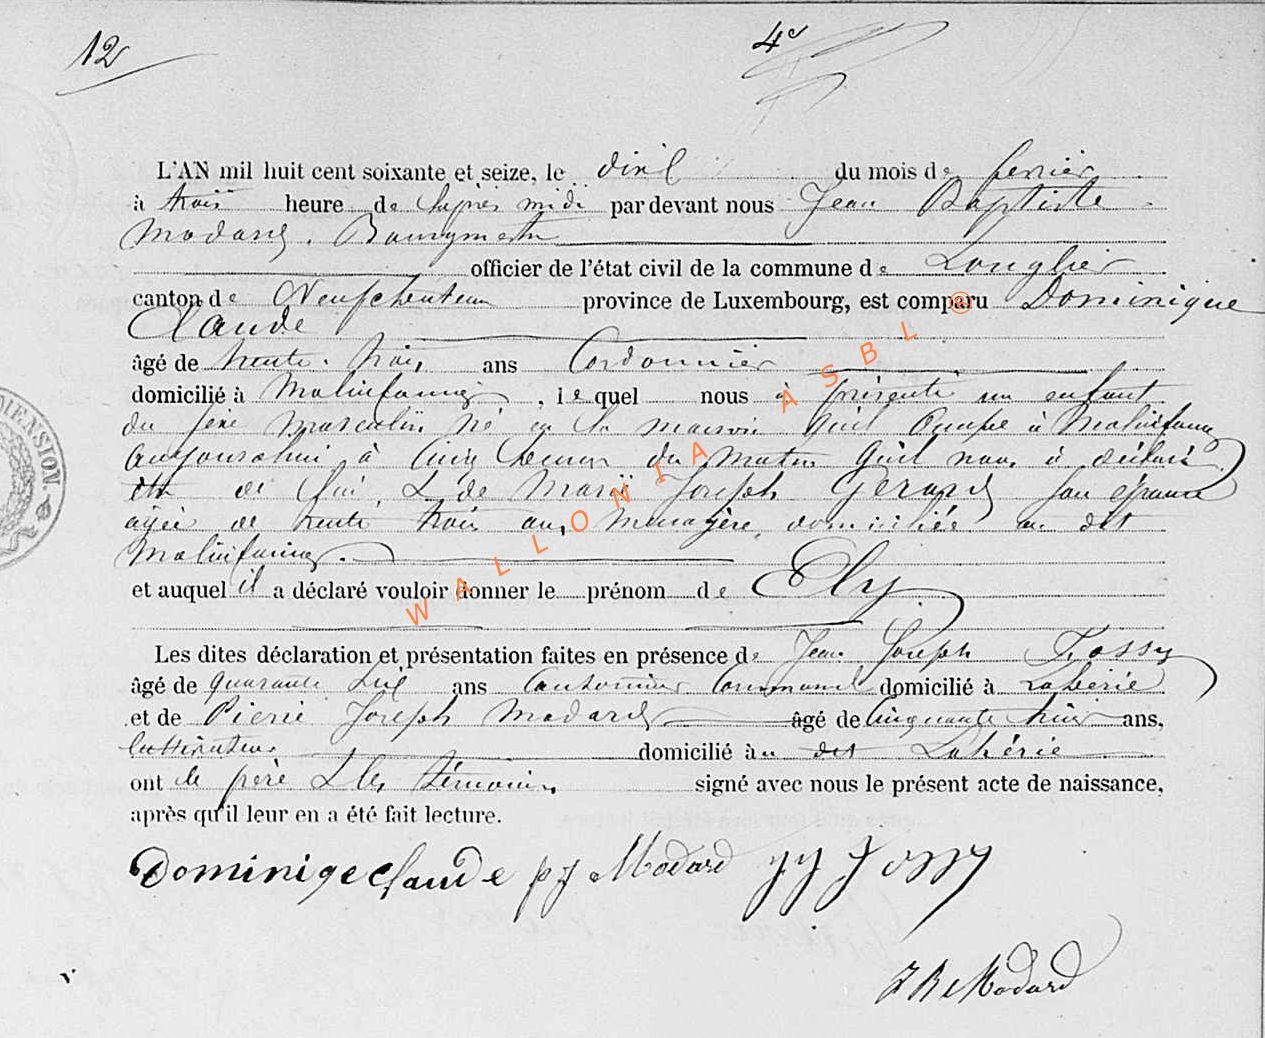 12
4e
L'AN mil huit cent soixante et seize, le dixl du mois de fevrier
à trois heure de l'après midi par devant nous Jean Baptiste
Modard. Bourgmestre
officier de l'état civil de la commune de Longlier
canton de Neufchateau province de Luxembourg, est comparu Dominique
Claude
âgé de trente-trois ans Cordonnier
domicilié à Molinfaing, lequel nous a présenté un enfant
du sexe masculin né en la maison qu'il occupe à Molinfaing
aujourd'hui à cinq heures du matin qu'il nous a déclaré
être de lui, & de Marie Joseph Gerard son épouse
agée de trente trois ans, menagère, domiciliée au dit
Molinfaing.
et auquel il a déclaré vouloir donner le prénom de Ely
Les dites déclaration et présentation faites en présence de Jean Joseph Fossy
âgé de quarante six ans Cantonnier Communal domicilié à Lahérie
et de Pierre Joseph Modard âgé de Cinquante huit ans,
cultivateur domicilié au dit Lahérie
ont le père & les témoins signé avec nous le présent acte de naissance,
après qu'il leur en a été fait lecture.
Dominiqe Claude pj Modard JJ Fossy
J B Modard
DIENSION
WALLONIA ASBL ®